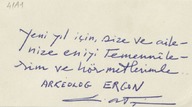 Yeni yıl için, size ve aile-
nize en iyi Temennile-
rim ve hörmetlerimle.
ARKEOLOG ERGON